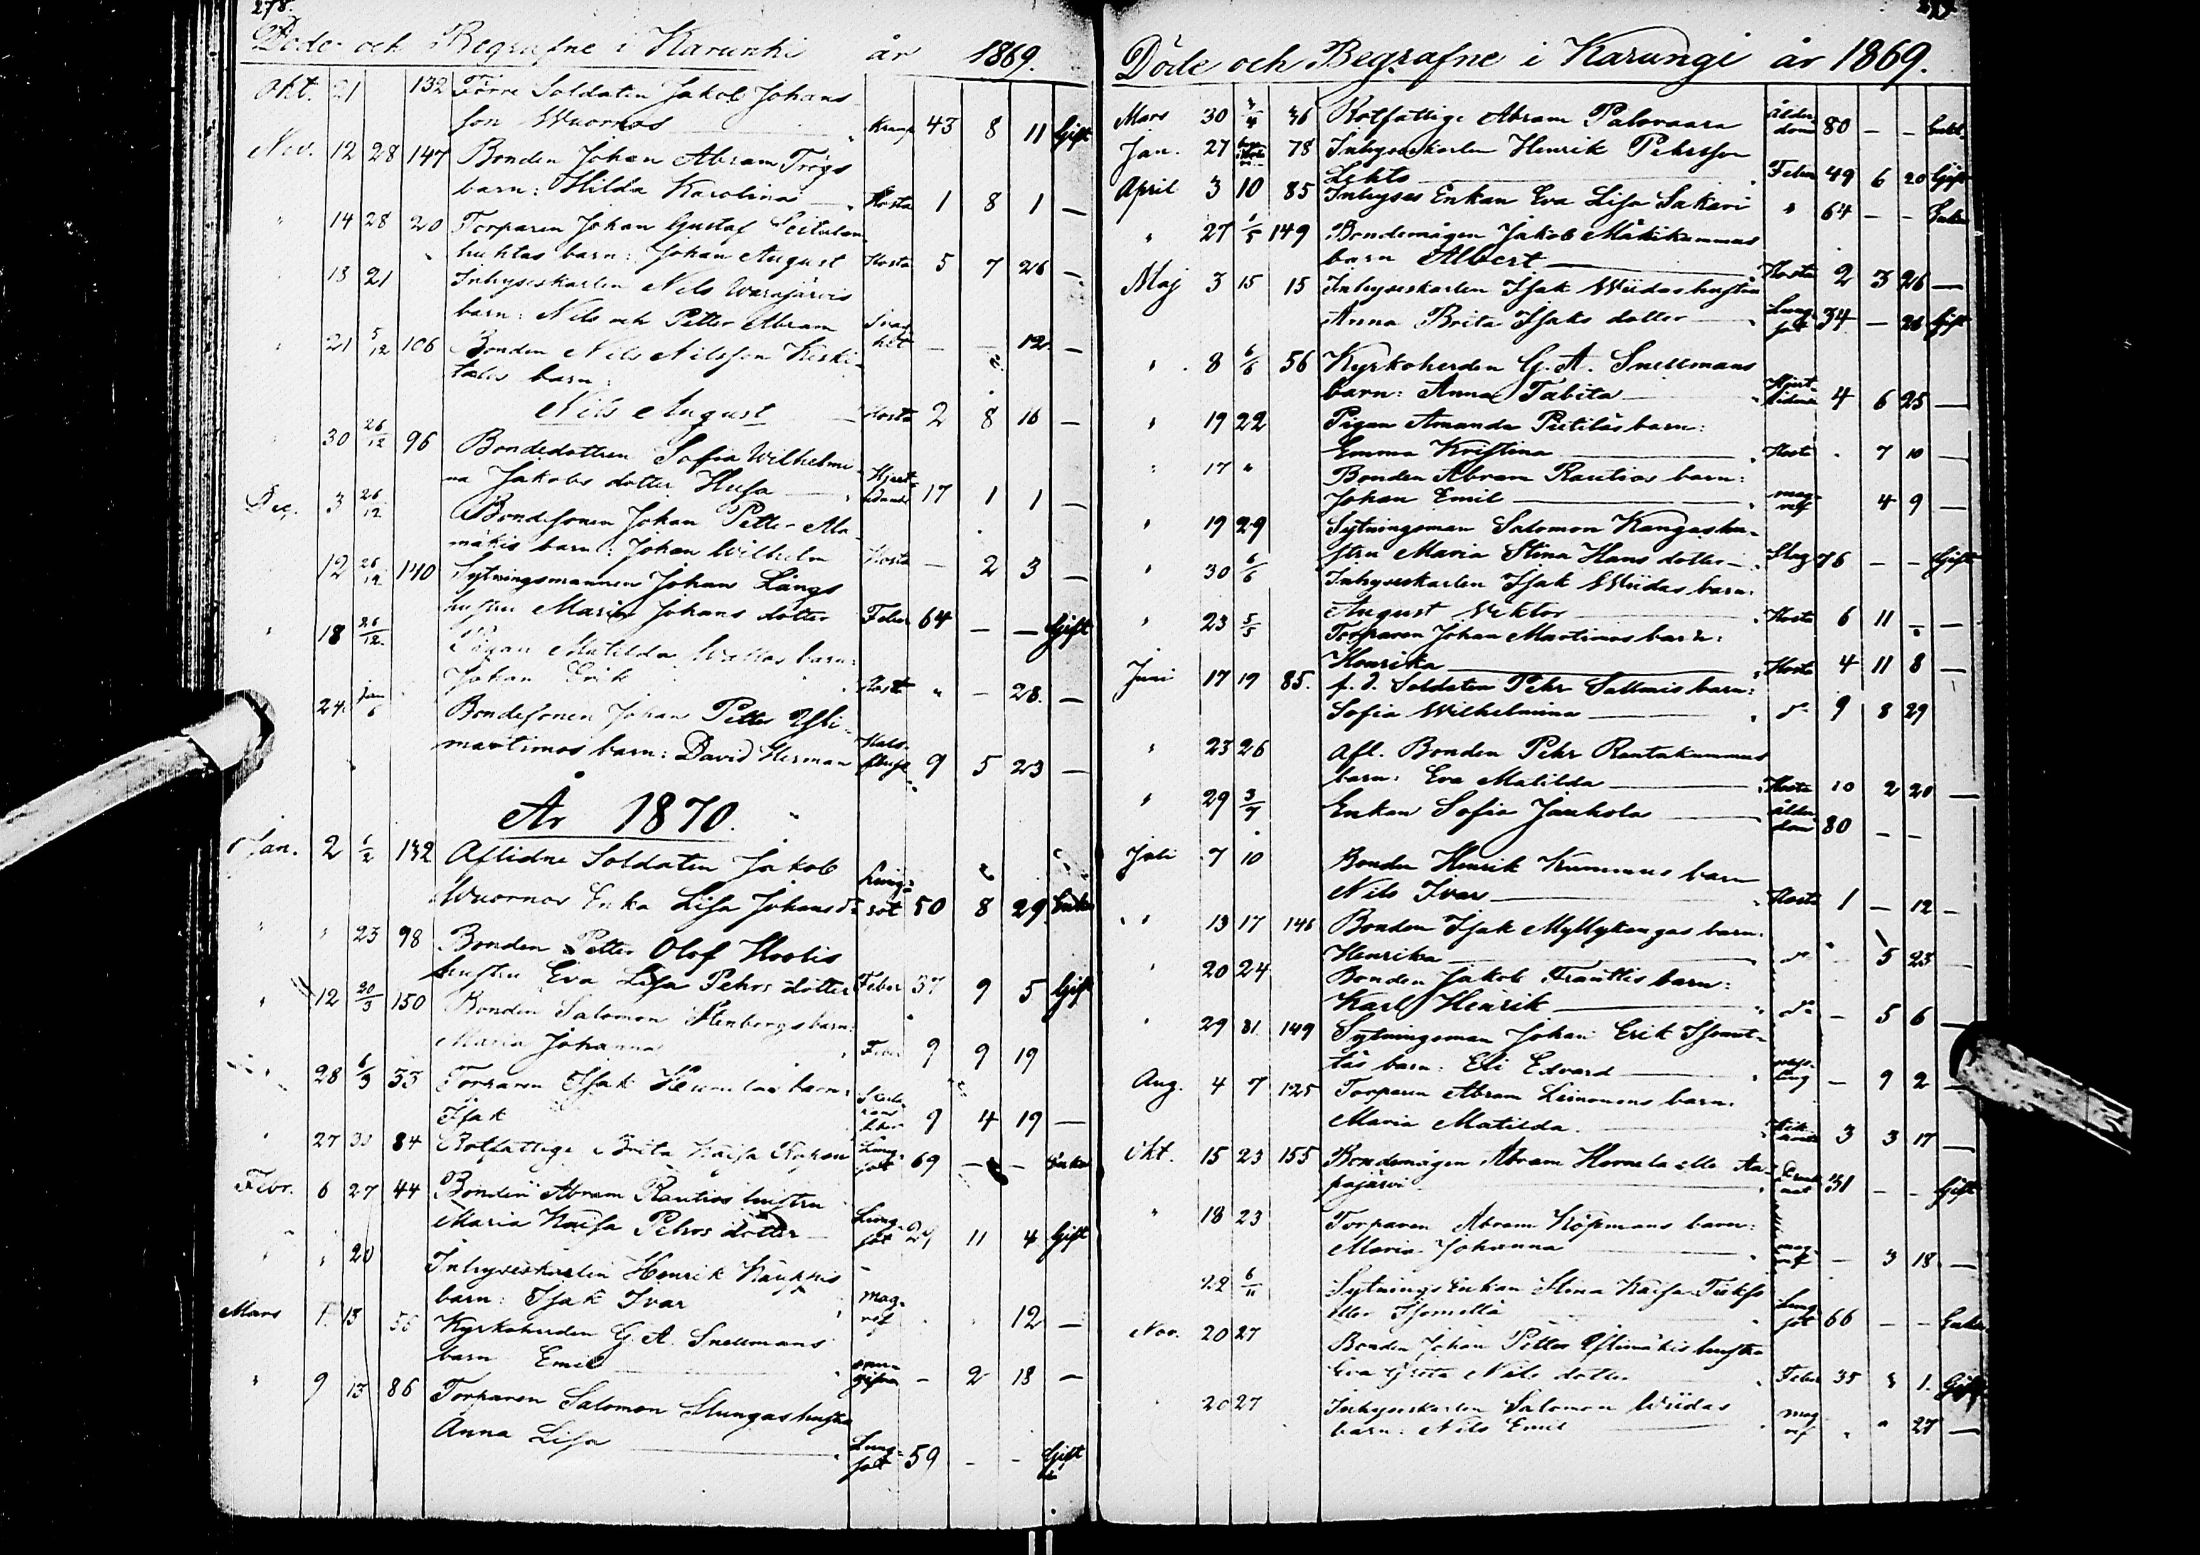 278.
Döde och Begrafne i Karunki år 1869.
Okt. 21 132 Förre Soldaten Jakob Johans
son Wuornos Kramp 43 8 11 Gift
Nov. 12 28 147 Bonden Johan Abram Frögs
barn: Hilda Karolina Hosta 1 8 1 —
" 14 28 20 Torparen Johan Gustaf
huhtas barn: Johan August Hosta 5 7 26 —
13 21 Inhyseskarlen Nils Warajärvis
barn: Nils och Petter Abram — — 12 —
21 5/12 106 Bonden Nils Nilsson Keski-
talos barn:
Nils August Hosta 2 8 16 —
30 26/12 96 Bondedottren Sofia Wilhelmi-
na Jakobs dotter Husa 17 1 1 —
Dec. 3 26/12 Bondesonen Johan Petter Ala-
mäkis barn: Johan Wilhelm Hosta — 2 3 —
12 26/12 140 Sytningsmannen Johan Långs
hustru Maria Johans dotter Feber 64 — — Gift
" 18 26/12 Pigan Matilda barn:
Johan Erik " — 28 —
24 Jan 6 Bondesonen Johan Petter Yli-
martimos barn: David Herman 9 5 23 —
År 1870.
Jan. 2 1/2 132 Aflidne Soldaten Jakob
Wuornos Enka Lisa Johans dr Lung-
sot 50 8 29 Enka
" " 23 98 Bonden Petter Olof
hustru Eva Lisa Pehrs dotter Feber 37 9 5 Gift
" 12 20/3 150 Bonden Salomon Stenborgs barn:
Maria Johanna Feber 9 9 19
28 6/3 33 Torparen Isak barn:
Isak 9 4 19 —
" 27 84 Rotfattige Brita Kaisa Lung-
sot 69 — — Enka
Febr. 6 27 44 Bonden Abram Rautios hustru
Maria Kaisa Pehrs dotter Lung-
sot 11 4 Gift
" " 20 Inhyseskarlen Henrik Kauppis
barn: Isak Ivar mag-
ref 12 —
Mars 13 56 Kyrkoherden G. A. Snellmans
barn Emil — 2 18 —
" 9 13 86 Torparen Salomon Slungas hustru
Anna Lisa Lung-
sot 59 - - Gift
Döde och Begrafne i Karungi år 1869.
Mars 30 3/4 36 Rotfattige Abram Palovaara Ålder-
dom 80 — — Enkl.
Jan. 27 78 Inhyseskarlen Henrik Pehrsson
Lehto Feber 49 6 20 Gift
April 3 10 85 Inhyses Enkan Eva Lisa Sakari " 64 — — Enka
" 27 1/5 149 Bondemågen Jakob Mäkikummus
barn Albert Hosta 2 3 26 —
Maj 3 15 15 Inhyseskarlen Isak Wiidas hustru
Anna Brita Isaks dotter Lung-
sot 34 — 26 Gift
" 8 6/6 56 Kyrkoherden G. A. Snellmans
barn: Anna Tabita 4 6 25 —
" 19 22 Pigan Amanda Pietiläs barn:
Emma Kristina Hosta - 7 10 —
" 17 " Bonden Abram Rautios barn:
Johan Emil mag-
ref 4 9 —
" 19 29 Sytningsman Salomon Kangas hu-
stru Maria Stina Hans dotter Slag 76 — — Gift
" 30 6/6 Inhyseskarlen Isak Wiidas barn:
August Viktor Hosta 6 11 — —
" 23 5/5 Torparen Johan Martimos barn:
Henrika Hosta 4 11 8 —
Juni 17 19 85. f. d. Soldaten Pehr barn:
Sofia Wilhelmina do 9 8 29
" 23 26 Afl. Bonden Pehr Rantakummus
barn: Eva Matilda Hosta 10 2 20 —
" 29 3/7 Enkan Sofia Jauhola Ålder-
dom 80 — —
Juli 7 10 Bonden Henrik Kummus barn
Nils Ivar Hosta 1 — 12 —
" 13 17 146 Bonden Isak Myllykangas barn:
Henrika do 5 23 —
" 20 24 Bonden Jakob barn:
Karl Henrik do — 5 6 —
" 29 31 149 Sytningsman Johan Erik
barn: Eli Edvard — 9 2 —
Aug. 4 7 125 Torparen Abram Leinonens barn:
Maria Matilda 3 3 17 —
Okt. 15 23 155 Bondemågen Abram Hornela eller Aa-
pajärvi 31 — — Gift
" 18 23 Torparen Abram Köpmans barn:
Maria Johanna mag-
ref — 3 18 —
22 6/11 Sytnings Enkan Stina Kaisa
eller Lung-
sot 66 — — Enka
Nov. 20 27 Bonden Johan Petter hustru
Eva Greta Nils dotter Feber 35 1. Gift
20 27 Inhyseskarlen Salomon Wiidas
barn: Nils Emil mag-
ref " " 27 —